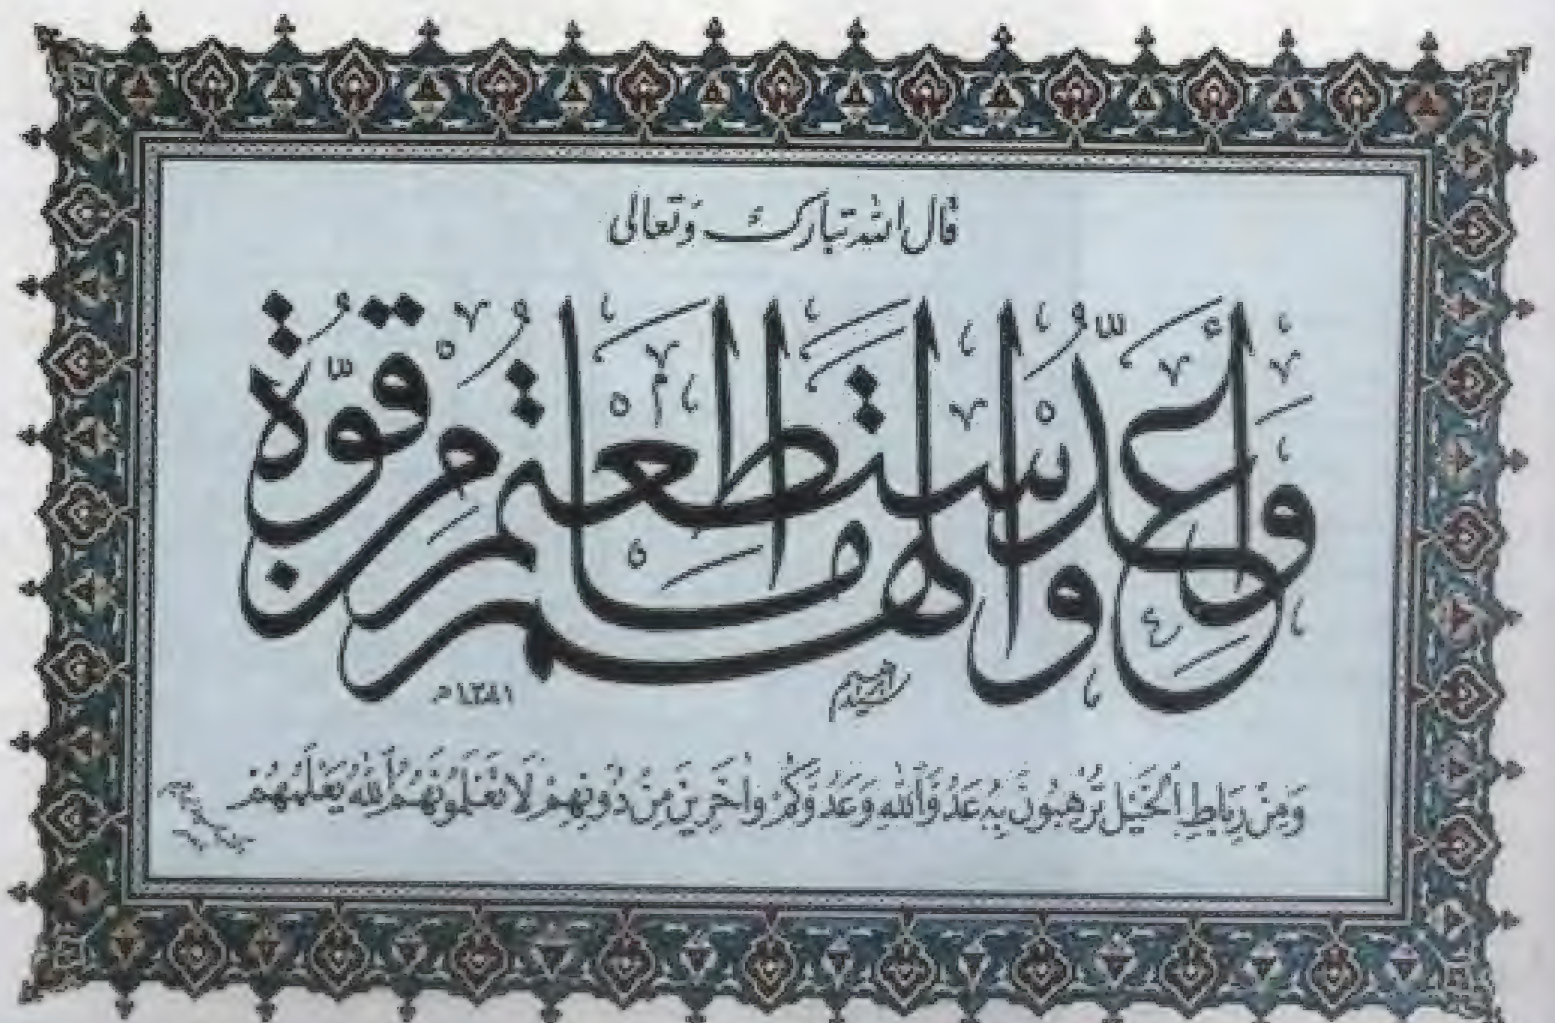 قال الله تبارك وتعالى
وأعدوا لهم ما استطعتم من قوة
١٣٨١ م
وَمِنْ رِبَاطِ الْخَيْلِ تُرْهِبُونَ بِهِ عَدُوَّ اللهِ وَعَدُوَّكُمْ وَآخَرِينَ مِنْ دُونِهِمْ لَا تَعْلَمُونَهُمُ اللهُ يَعْلَمُهُمْ